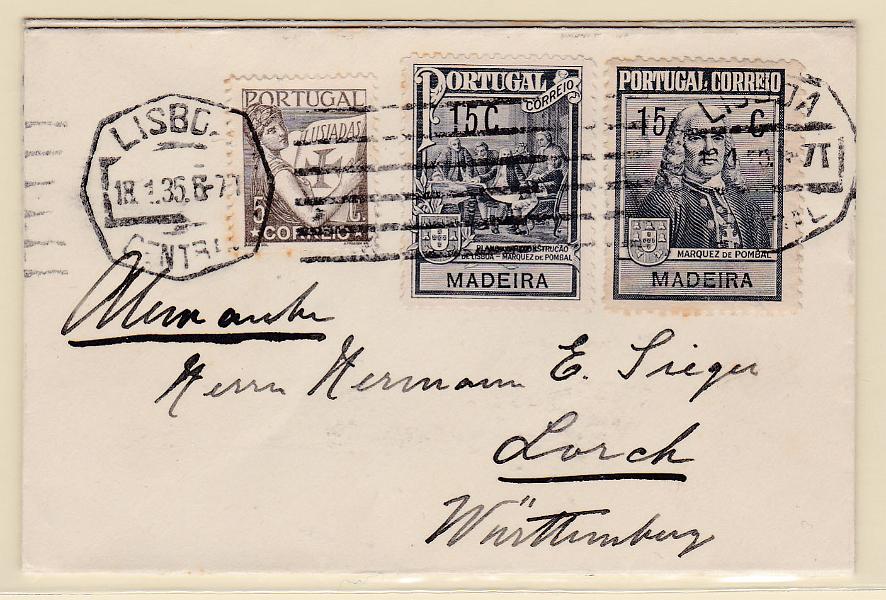 PORTUGAL
LUSIADAS
5 C.
CORREIO
PORTUGAL
CORREIO
15 C
PLANO RECONSTRUÇÃO
DE LISBOA - MARQUEZ DE POMBAL
MADEIRA
PORTUGAL CORREIO
15 C
MARQUEZ DE POMBAL
MADEIRA
LISBO
18.1.35.
CENTRAL
LISBOA
Allemanha
Herrn Hermann E. Sieger
Lorch
Württemberg